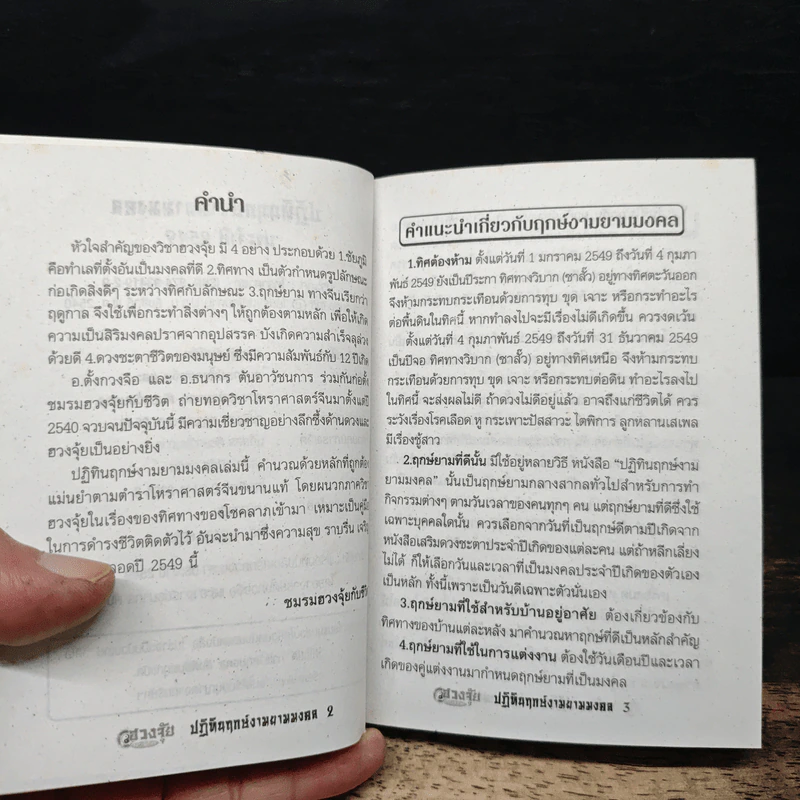 คำนำ
หัวใจสำคัญของวิชาฮวงจุ้ย มี 4 อย่าง ประกอบด้วย 1.ชัยภูมิ
คือทำเลที่ตั้งอันเป็นมงคลที่ดี 2.ทิศทาง เป็นตัวกำหนดรูปลักษณะ
ก่อเกิดสิ่งดีๆ ระหว่างทิศกับลักษณะ 3.ฤกษ์ยาม ทางจีนเรียกว่า
ฤดูกาล จึงใช้เพื่อกระทำสิ่งต่างๆ ให้ถูกต้องตามหลัก เพื่อให้เกิด
ความเป็นสิริมงคลปราศจากอุปสรรค บังเกิดความสำเร็จลุล่วง
ด้วยดี 4.ดวงชะตาชีวิตของมนุษย์ ซึ่งมีความสัมพันธ์กับ 12 ปีเกิด
อ.ตั้งกวงจือ และ อ.ธนากร ตันอาวัชนการ ร่วมกันก่อตั้ง
ชมรมฮวงจุ้ยกับชีวิต ถ่ายทอดวิชาโหราศาสตร์จีนมาตั้งแต่ปี
2540 จวบจนปัจจุบันนี้ มีความเชี่ยวชาญอย่างลึกซึ้งด้านดวงและ
ฮวงจุ้ยเป็นอย่างยิ่ง
ปฏิทินฤกษ์งามยามมงคลเล่มนี้ คำนวณด้วยหลักที่ถูกต้อง
แม่นยำตามตำราโหราศาสตร์จีนขนานแท้ โดยผนวกภาควิชา
ฮวงจุ้ยในเรื่องของทิศทางของโชคลาภเข้ามา เหมาะเป็นคู่มือ
ในการดำรงชีวิตติดตัวไว้ อันจะนำมาซึ่งความสุข ราบรื่น เจริญ
อดปี 2549 นี้
ชมรมฮวงจุ้ยกับชีวิต
ฮวงจุ้ย ปฏิทินฤกษ์งามยามมงคล 2
คำแนะนำเกี่ยวกับฤกษ์งามยามมงคล
1.ทิศต้องห้าม ตั้งแต่วันที่ 1 มกราคม 2549 ถึงวันที่ 4 กุมภา
พันธ์ 2549 ยังเป็นปีระกา ทิศทางวิบาก (ซาสั้ว) อยู่ทางทิศตะวันออก
จึงห้ามกระทบกระเทือนด้วยการทุบ ขุด เจาะ หรือกระทำอะไร
ต่อพื้นดินในทิศนี้ หากทำลงไปจะมีเรื่องไม่ดีเกิดขึ้น ควรงดเว้น
ตั้งแต่วันที่ 4 กุมภาพันธ์ 2549 ถึงวันที่ 31 ธันวาคม 2549
เป็นปีจอ ทิศทางวิบาก (ซาสั้ว) อยู่ทางทิศเหนือ จึงห้ามกระทบ
กระเทือนด้วยการทุบ ขุด เจาะ หรือกระทบต่อดิน ทำอะไรลงไป
ในทิศนี้ จะส่งผลไม่ดี ถ้าดวงไม่ดีอยู่แล้ว อาจถึงแก่ชีวิตได้ ควร
ระวังเรื่องโรคเลือด หู กระเพาะปัสสาวะ ไตพิการ ลูกหลานเสเพล
มีเรื่องชู้สาว
2.ฤกษ์ยามที่ดีนั้น มีใช้อยู่หลายวิธี หนังสือ “ปฏิทินฤกษ์งาม
ยามมงคล” นั้นเป็นฤกษ์ยามกลางสากลทั่วไปสำหรับการทำ
กิจกรรมต่างๆ ตามวันเวลาของคนทุกๆ คน แต่ฤกษ์ยามที่ดีซึ่งใช้
เฉพาะบุคคลใดนั้น ควรเลือกจากวันที่เป็นฤกษ์ดีตามปีเกิดจาก
หนังสือเสริมดวงชะตาประจำปีเกิดของแต่ละคน แต่ถ้าหลีกเลี่ยง
ไม่ได้ ก็ให้เลือกวันและเวลาที่เป็นมงคลประจำปีเกิดของตัวเอง
เป็นหลัก ทั้งนี้เพราะเป็นวันดีเฉพาะตัวนั่นเอง
3.ฤกษ์ยามที่ใช้สำหรับบ้านอยู่อาศัย ต้องเกี่ยวข้องกับ
ทิศทางของบ้านแต่ละหลัง มาคำนวณหาฤกษ์ที่ดีเป็นหลักสำคัญ
4.ฤกษ์ยามที่ใช้ในการแต่งงาน ต้องใช้วันเดือนปีและเวลา
เกิดของคู่แต่งงานมากำหนดฤกษ์ยามที่เป็นมงคล
ฮวงจุ้ย ปฏิทินฤกษ์งามยามมงคล 3